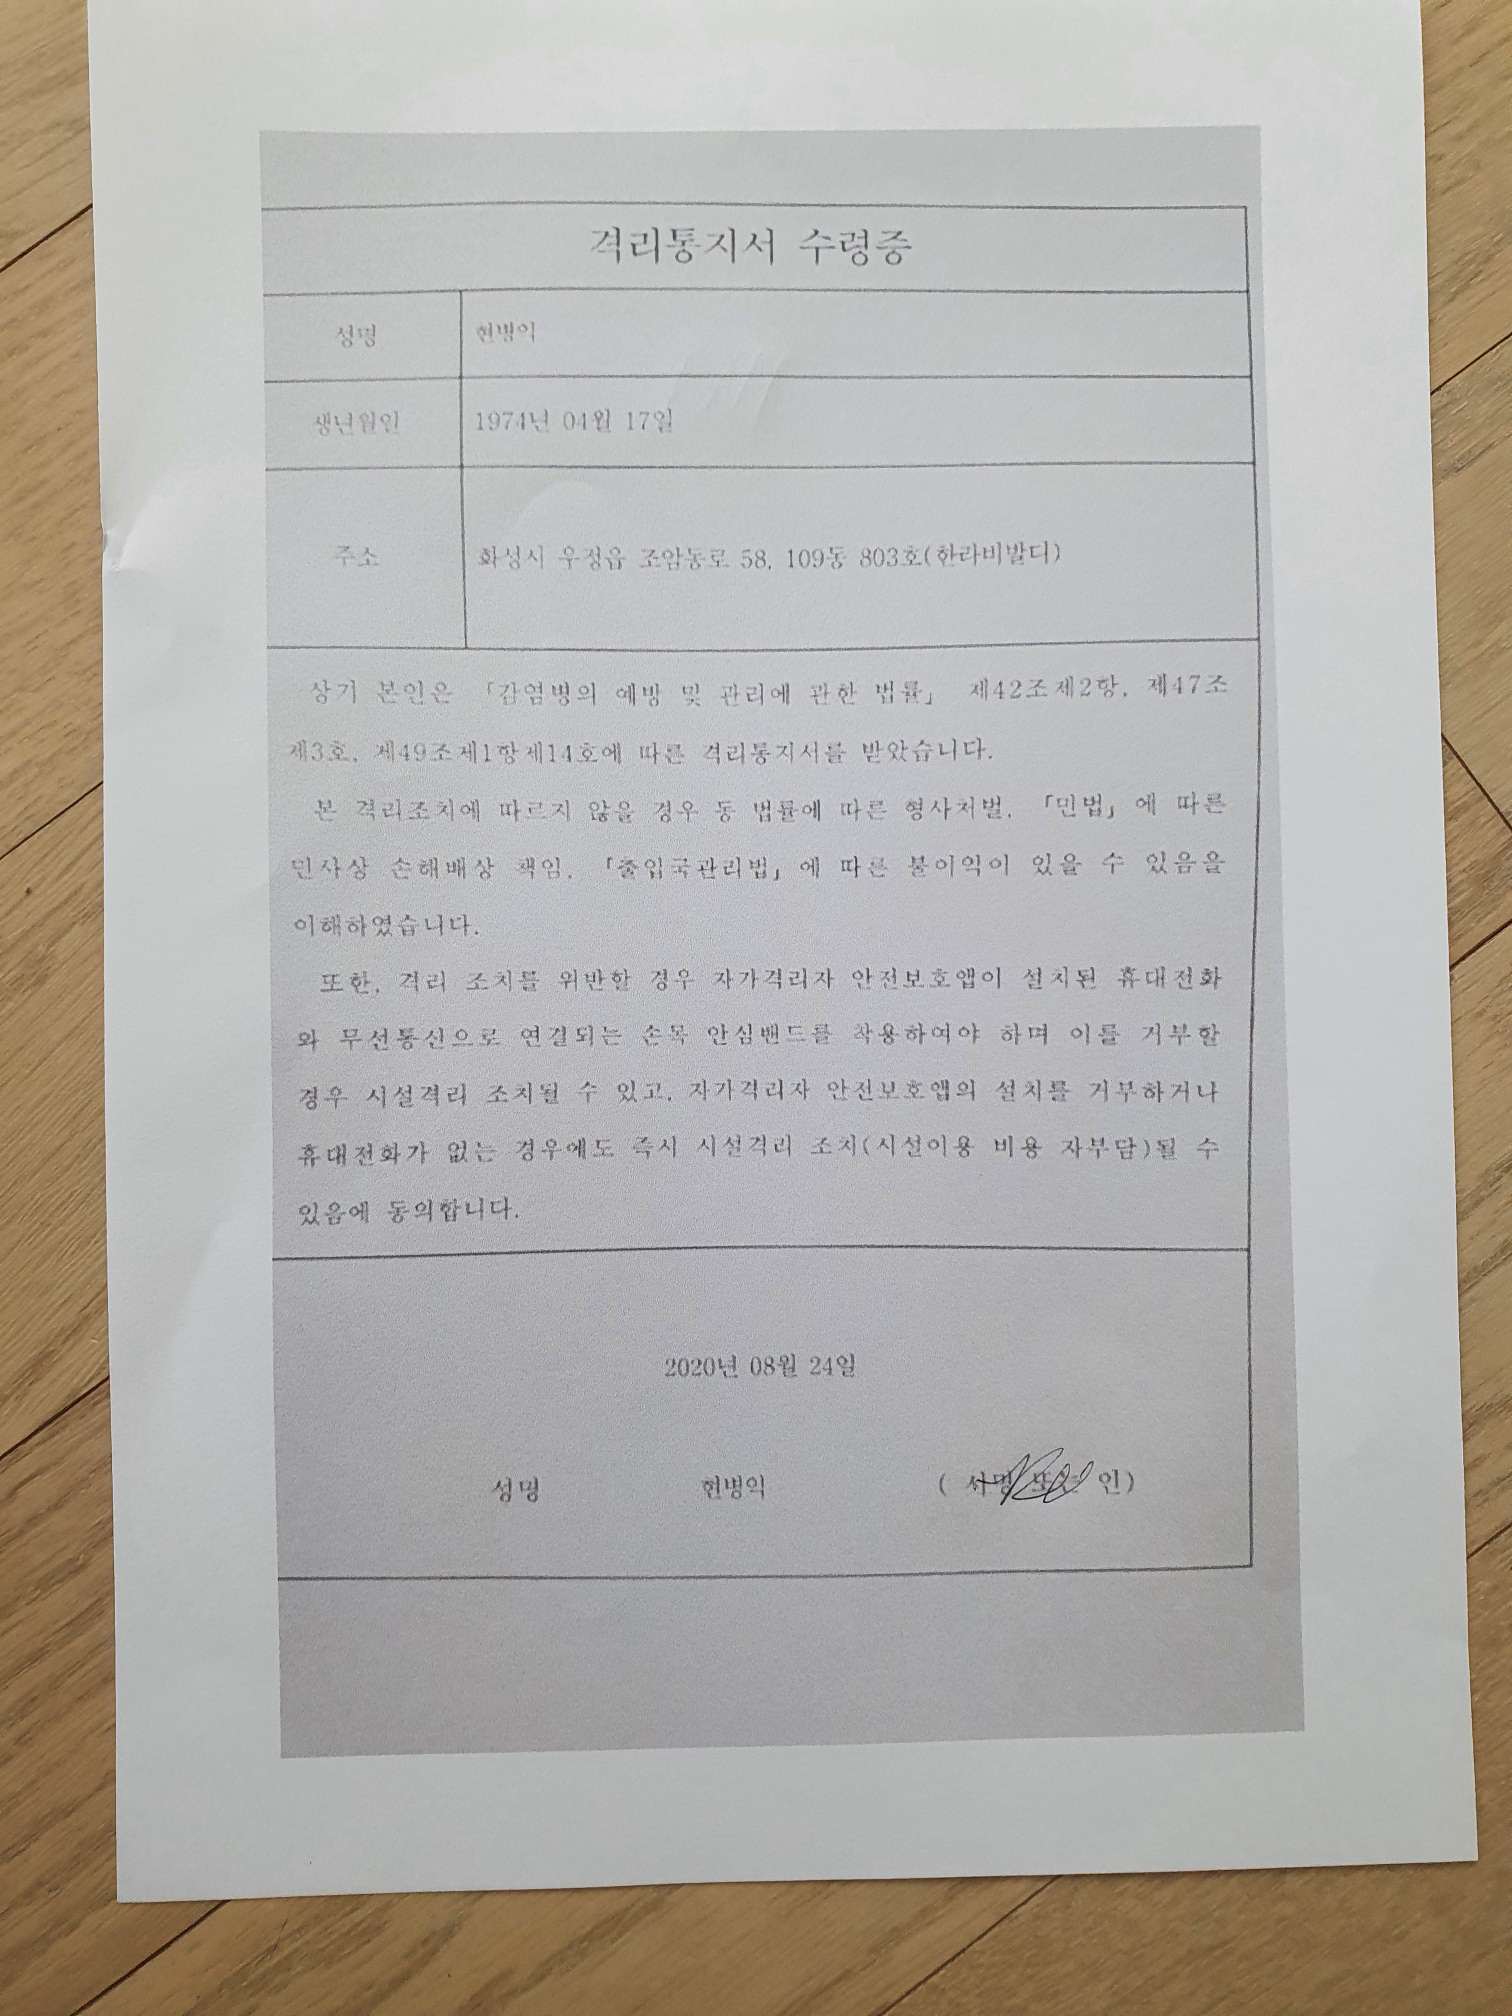 격리통지서 수령증
성명 현병익
생년월일 1974년 04월 17일
주소 화성시 우정읍 조암동로 58, 109동 803호(한라비발디)
상기 본인은 「감염병의 예방 및 관리에 관한 법률」 제42조제2항, 제47조
제3호, 제49조제1항제14호에 따른 격리통지서를 받았습니다.
본 격리조치에 따르지 않을 경우 동 법률에 따른 형사처벌, 「민법」에 따른
민사상 손해배상 책임, 「출입국관리법」에 따른 불이익이 있을 수 있음을
이해하였습니다.
또한, 격리 조치를 위반할 경우 자가격리자 안전보호앱이 설치된 휴대전화
와 무선통신으로 연결되는 손목 안심밴드를 착용하여야 하며 이를 거부할
경우 시설격리 조치될 수 있고, 자가격리자 안전보호앱의 설치를 거부하거나
휴대전화가 없는 경우에도 즉시 시설격리 조치(시설이용 비용 자부담)될 수
있음에 동의합니다.
2020년 08월 24일
성명 현병익 (서명 또는 인)